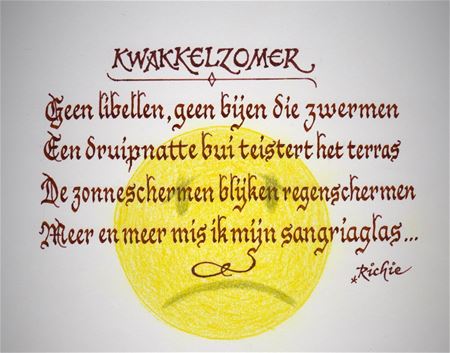 KWAKKELZOMER
Geen libellen, geen bijen die zwermen
Een druipnatte bui teistert het terras
De zonneschermen blijken regenschermen
Meer en meer mis ik mijn sangriaglas...
*Richie